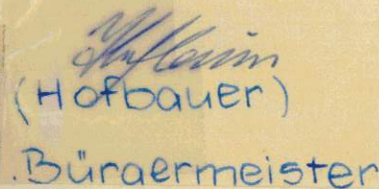 (Hofbauer)
.Bürgermeister